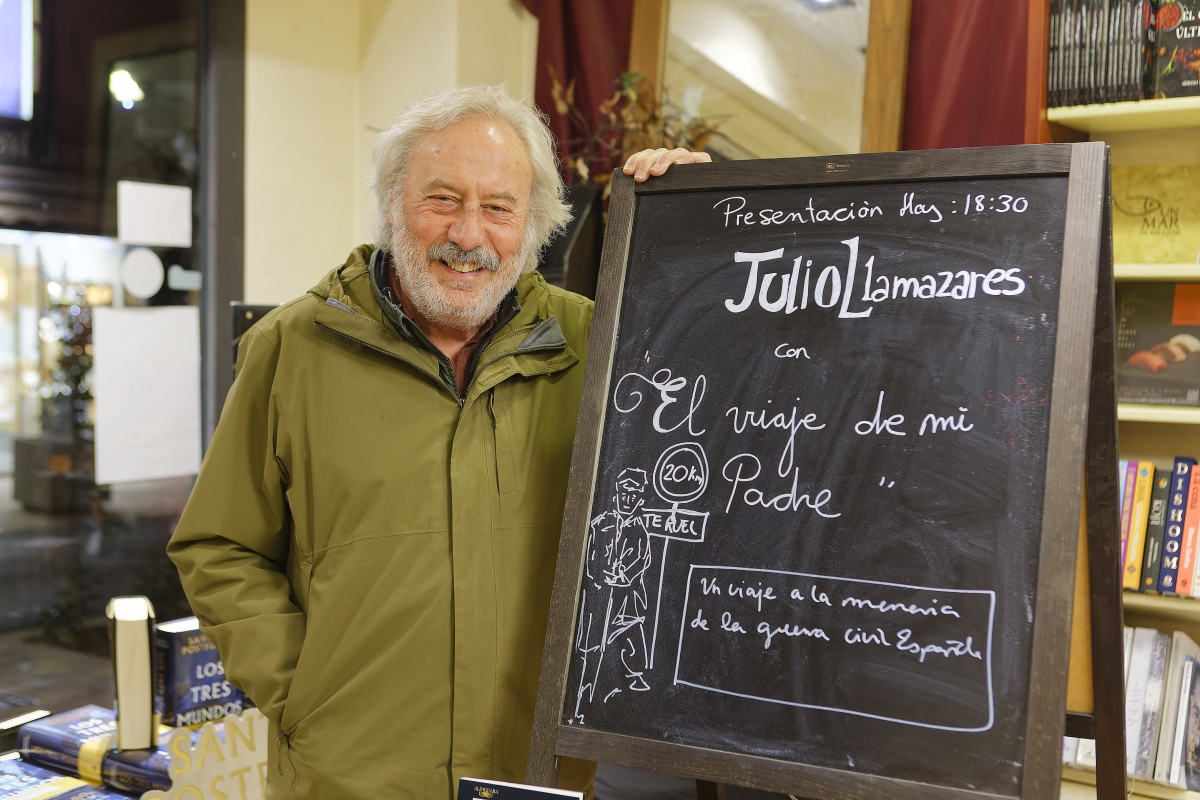 Presentación Hoy : 18:30
Julio Llamazares
con
"El viaje de mi
Padre"
20 km
TERUEL
Un viaje a la memoria
de la guerra civil Española
LOS
TRES
MUNDOS
SAN
POSTE
MAR
DISHOOM
ALFAGUARA